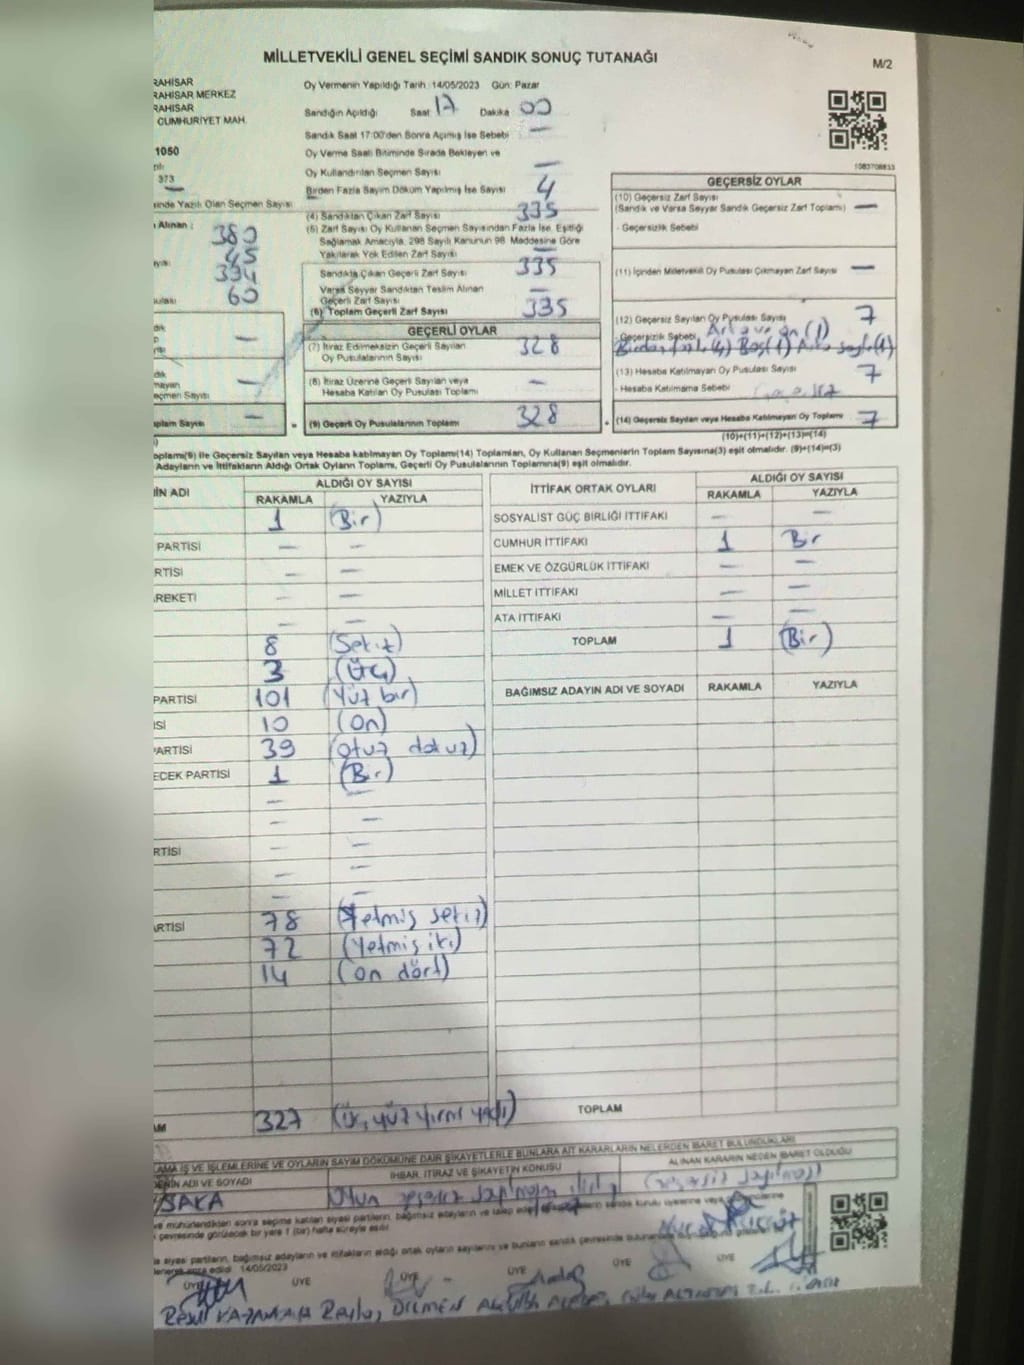 MİLLETVEKİLİ GENEL SEÇİMİ SANDIK SONUÇ TUTANAĞI
M/2
RAHİSAR
RAHİSAR MERKEZ
RAHİSAR
CUMHURİYET MAH.
1050
373
Oy Vermenin Yapıldığı Tarih :14/05/2023 Gün: Pazar
Sandığın Açıldığı Saat 17 Dakika 00
Sandık Saat 17:00'den Sonra Açılmış İse Sebebi —
Oy Verme Saati Bitiminde Sırada Bekleyen ve
Oy Kullandırılan Seçmen Sayısı —
Birden Fazla Sayım Döküm Yapılmış İse Sayısı 4
sinde Yazılı Olan Seçmen Sayısı
Alınan : 380
45
334
60
(4) Sandıktan Çıkan Zarf Sayısı 335
(5) Zarf Sayısı Oy Kullanan Seçmen Sayısından Fazla İse, Eşitliği
Sağlamak Amacıyla, 298 Sayılı Kanunun 98. Maddesine Göre
Yakılarak Yok Edilen Zarf Sayısı —
Sandıkta Çıkan Geçerli Zarf Sayısı 335
Varsa Seyyar Sandıktan Teslim Alınan
Geçerli Zarf Sayısı —
(6) Toplam Geçerli Zarf Sayısı 335
GEÇERLİ OYLAR
(7) İtiraz Edilmeksizin Geçerli Sayılan
Oy Pusulalarının Sayısı 328
(8) İtiraz Üzerine Geçerli Sayılan veya
Hesaba Katılan Oy Pusulası Toplamı —
(9) Geçerli Oy Pusulalarının Toplamı 328
1083708833
GEÇERSİZ OYLAR
(10) Geçersiz Zarf Sayısı
(Sandık ve Varsa Seyyar Sandık Geçersiz Zarf Toplamı) —
- Geçersizlik Sebebi
(11) İçinden Milletvekili Oy Pusulası Çıkmayan Zarf Sayısı —
(12) Geçersiz Sayılan Oy Pusulası Sayısı 7
- Geçersizlik Sebebi
(13) Hesaba Katılmayan Oy Pusulası Sayısı 7
- Hesaba Katılmama Sebebi
(14) Geçersiz Sayılan veya Hesaba Katılmayan Oy Toplamı 7
(10)+(11)+(12)+(13)=(14)
oplamı(9) ile Geçersiz Sayılan veya Hesaba katılmayan Oy Toplamı(14) Toplamları, Oy Kullanan Seçmenlerin Toplam Sayısına(3) eşit olmalıdır. (9)+(14)=(3)
Adayların ve İttifakların Aldığı Ortak Oyların Toplamı, Geçerli Oy Pusulalarının Toplamına(9) eşit olmalıdır.
İN ADI
ALDIĞI OY SAYISI
RAKAMLA YAZIYLA
1 (Bir)
PARTİSİ — —
RTİSİ — —
REKETİ — —
— —
8 (Sekiz)
3 (Üç)
PARTİSİ 101 (Yüz bir)
İSİ 10 (On)
PARTİSİ 39 (Otuz dokuz)
ECEK PARTİSİ 1 (Bir)
— —
— —
RTİSİ —
— —
— —
ARTİSİ 78 (Yetmiş sekiz)
72 (Yetmiş iki)
14 (On dört)
AM 327 (Üç yüz yirmi yedi)
İTTİFAK ORTAK OYLARI
ALDIĞI OY SAYISI
RAKAMLA YAZIYLA
SOSYALİST GÜÇ BİRLİĞİ İTTİFAKI — —
CUMHUR İTTİFAKI 1 Bir
EMEK VE ÖZGÜRLÜK İTTİFAKI — —
MİLLET İTTİFAKI — —
ATA İTTİFAKI — —
TOPLAM 1 (Bir)
BAĞIMSIZ ADAYIN ADI VE SOYADI RAKAMLA YAZIYLA
TOPLAM
LAMA İŞ VE İŞLEMLERİNE VE OYLARIN SAYIM DÖKÜMÜNE DAİR ŞİKAYETLERLE BUNLARA AİT KARARLARIN NELERDEN İBARET BULUNDUKLARI
DENİN ADI VE SOYADI
İHBAR, İTİRAZ VE ŞİKAYETİN KONUSU
ALINAN KARARIN NEDEN İBARET OLDUĞU
SAKA
14/05/2023
ÜYE ÜYE ÜYE ÜYE ÜYE ÜYE